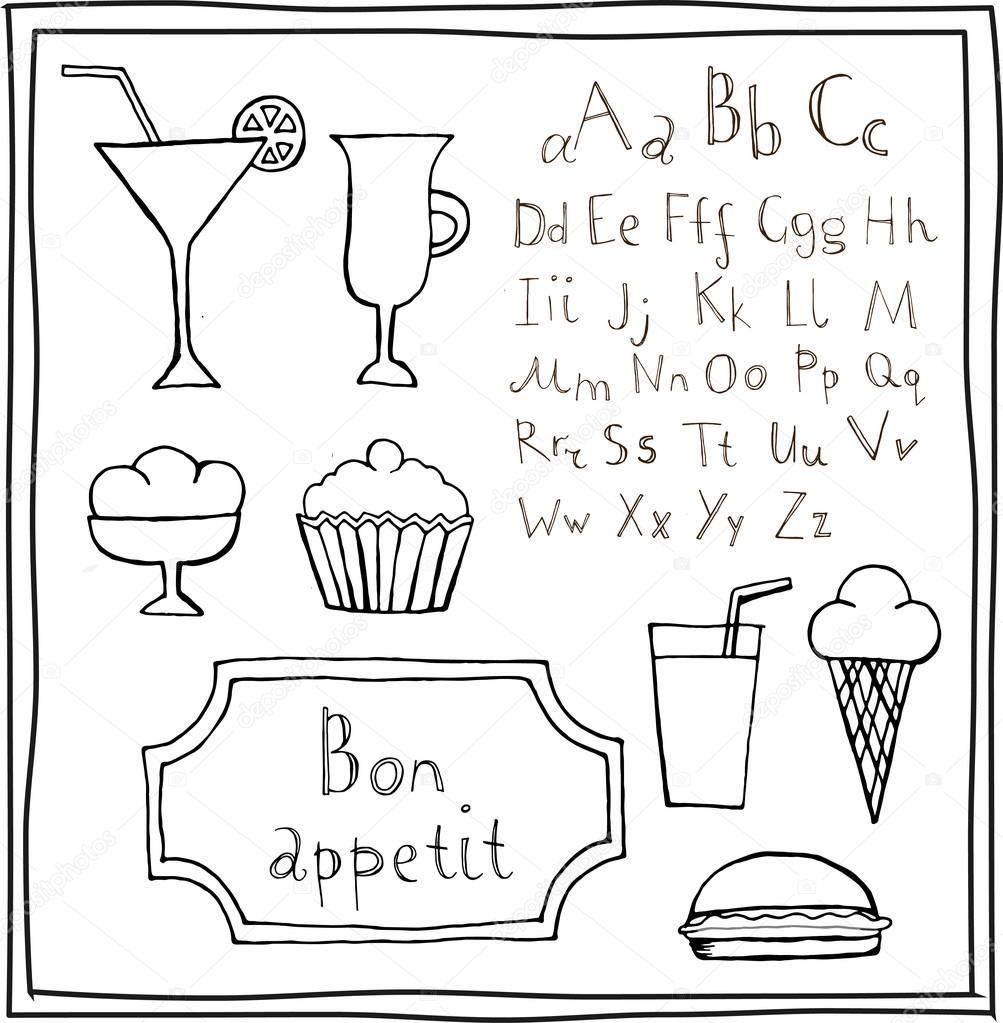 aAa Bb Cc
Dd Ee Fff Ggg Hh
Iii Jj Kk Ll M
Mm Nn Oo Pp Qq
Rrr Ss Tt Uu Vv
Ww Xx Yy Zz
Bon
appetit